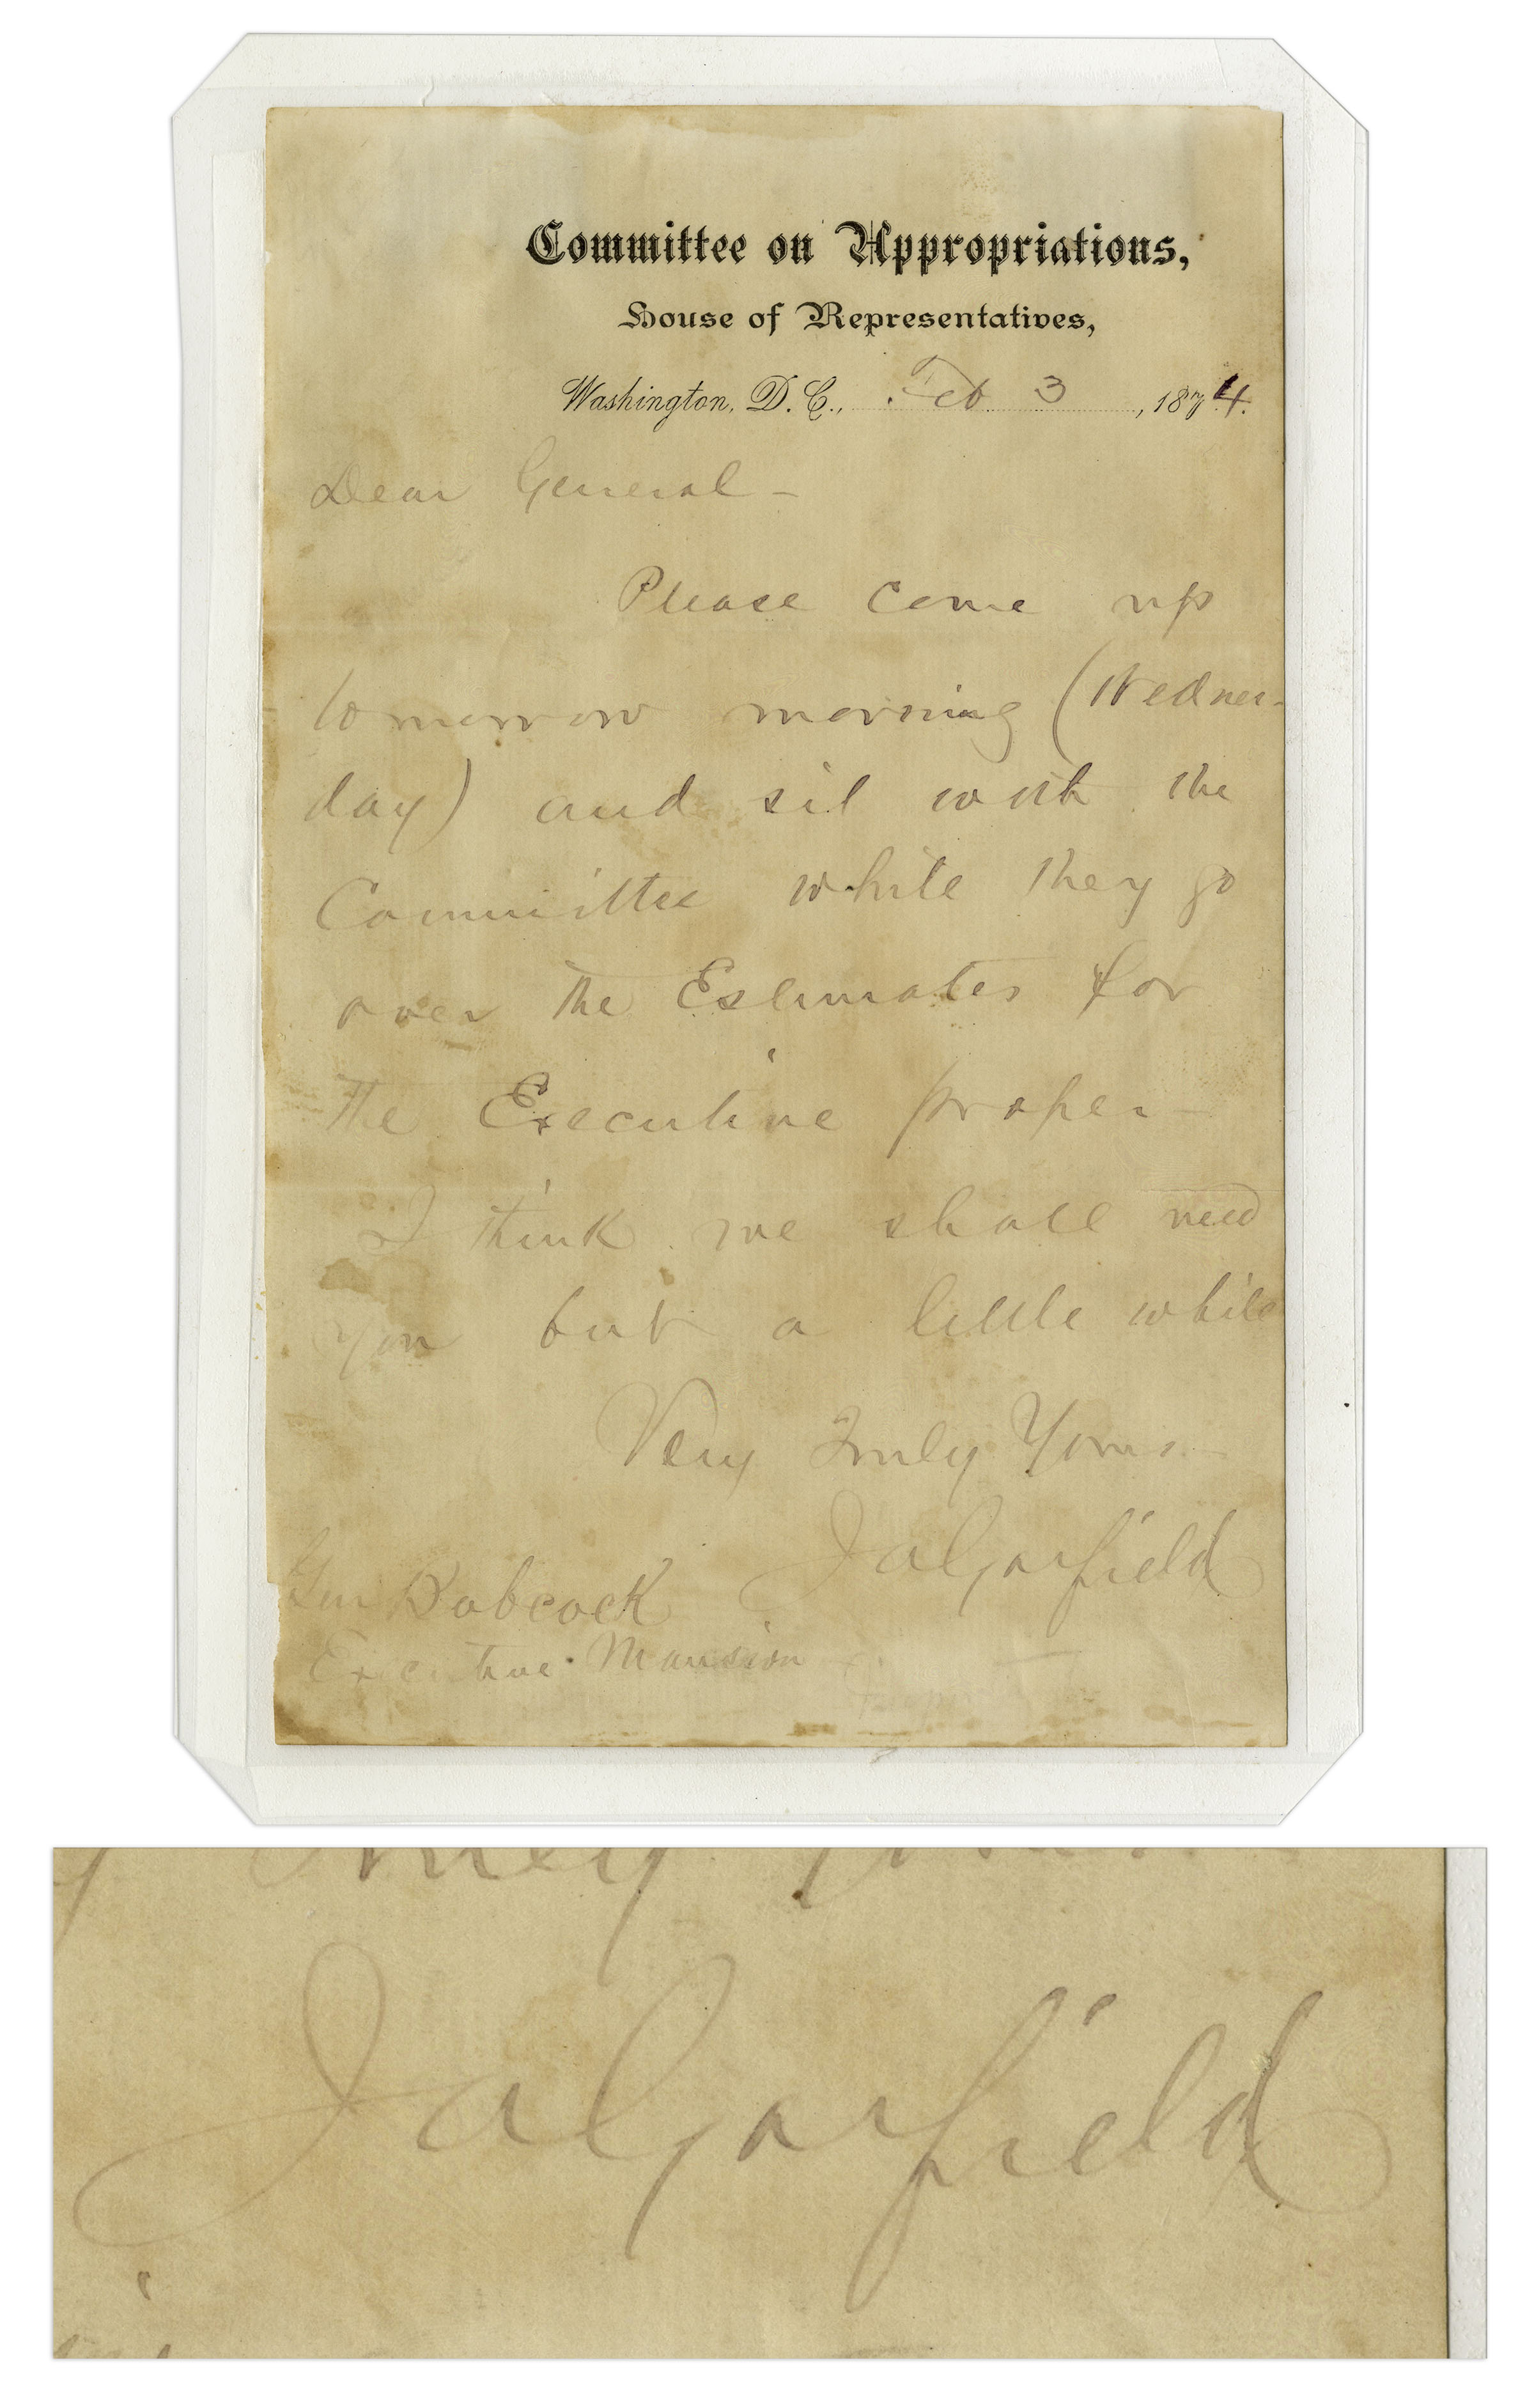 Committee on Appropriations,
House of Representatives,
Washington, D.C., Feb 3, 1874.
Dear General -
Please come up
tomorrow morning (Wednes-
day) and sit with the
Committee while they go
over the Estimates for
the Executive proper -
I think we shall need
you but a little while
Very Truly Yours
JAGarfield
Gen Babcock
Executive Mansion
JAGarfield